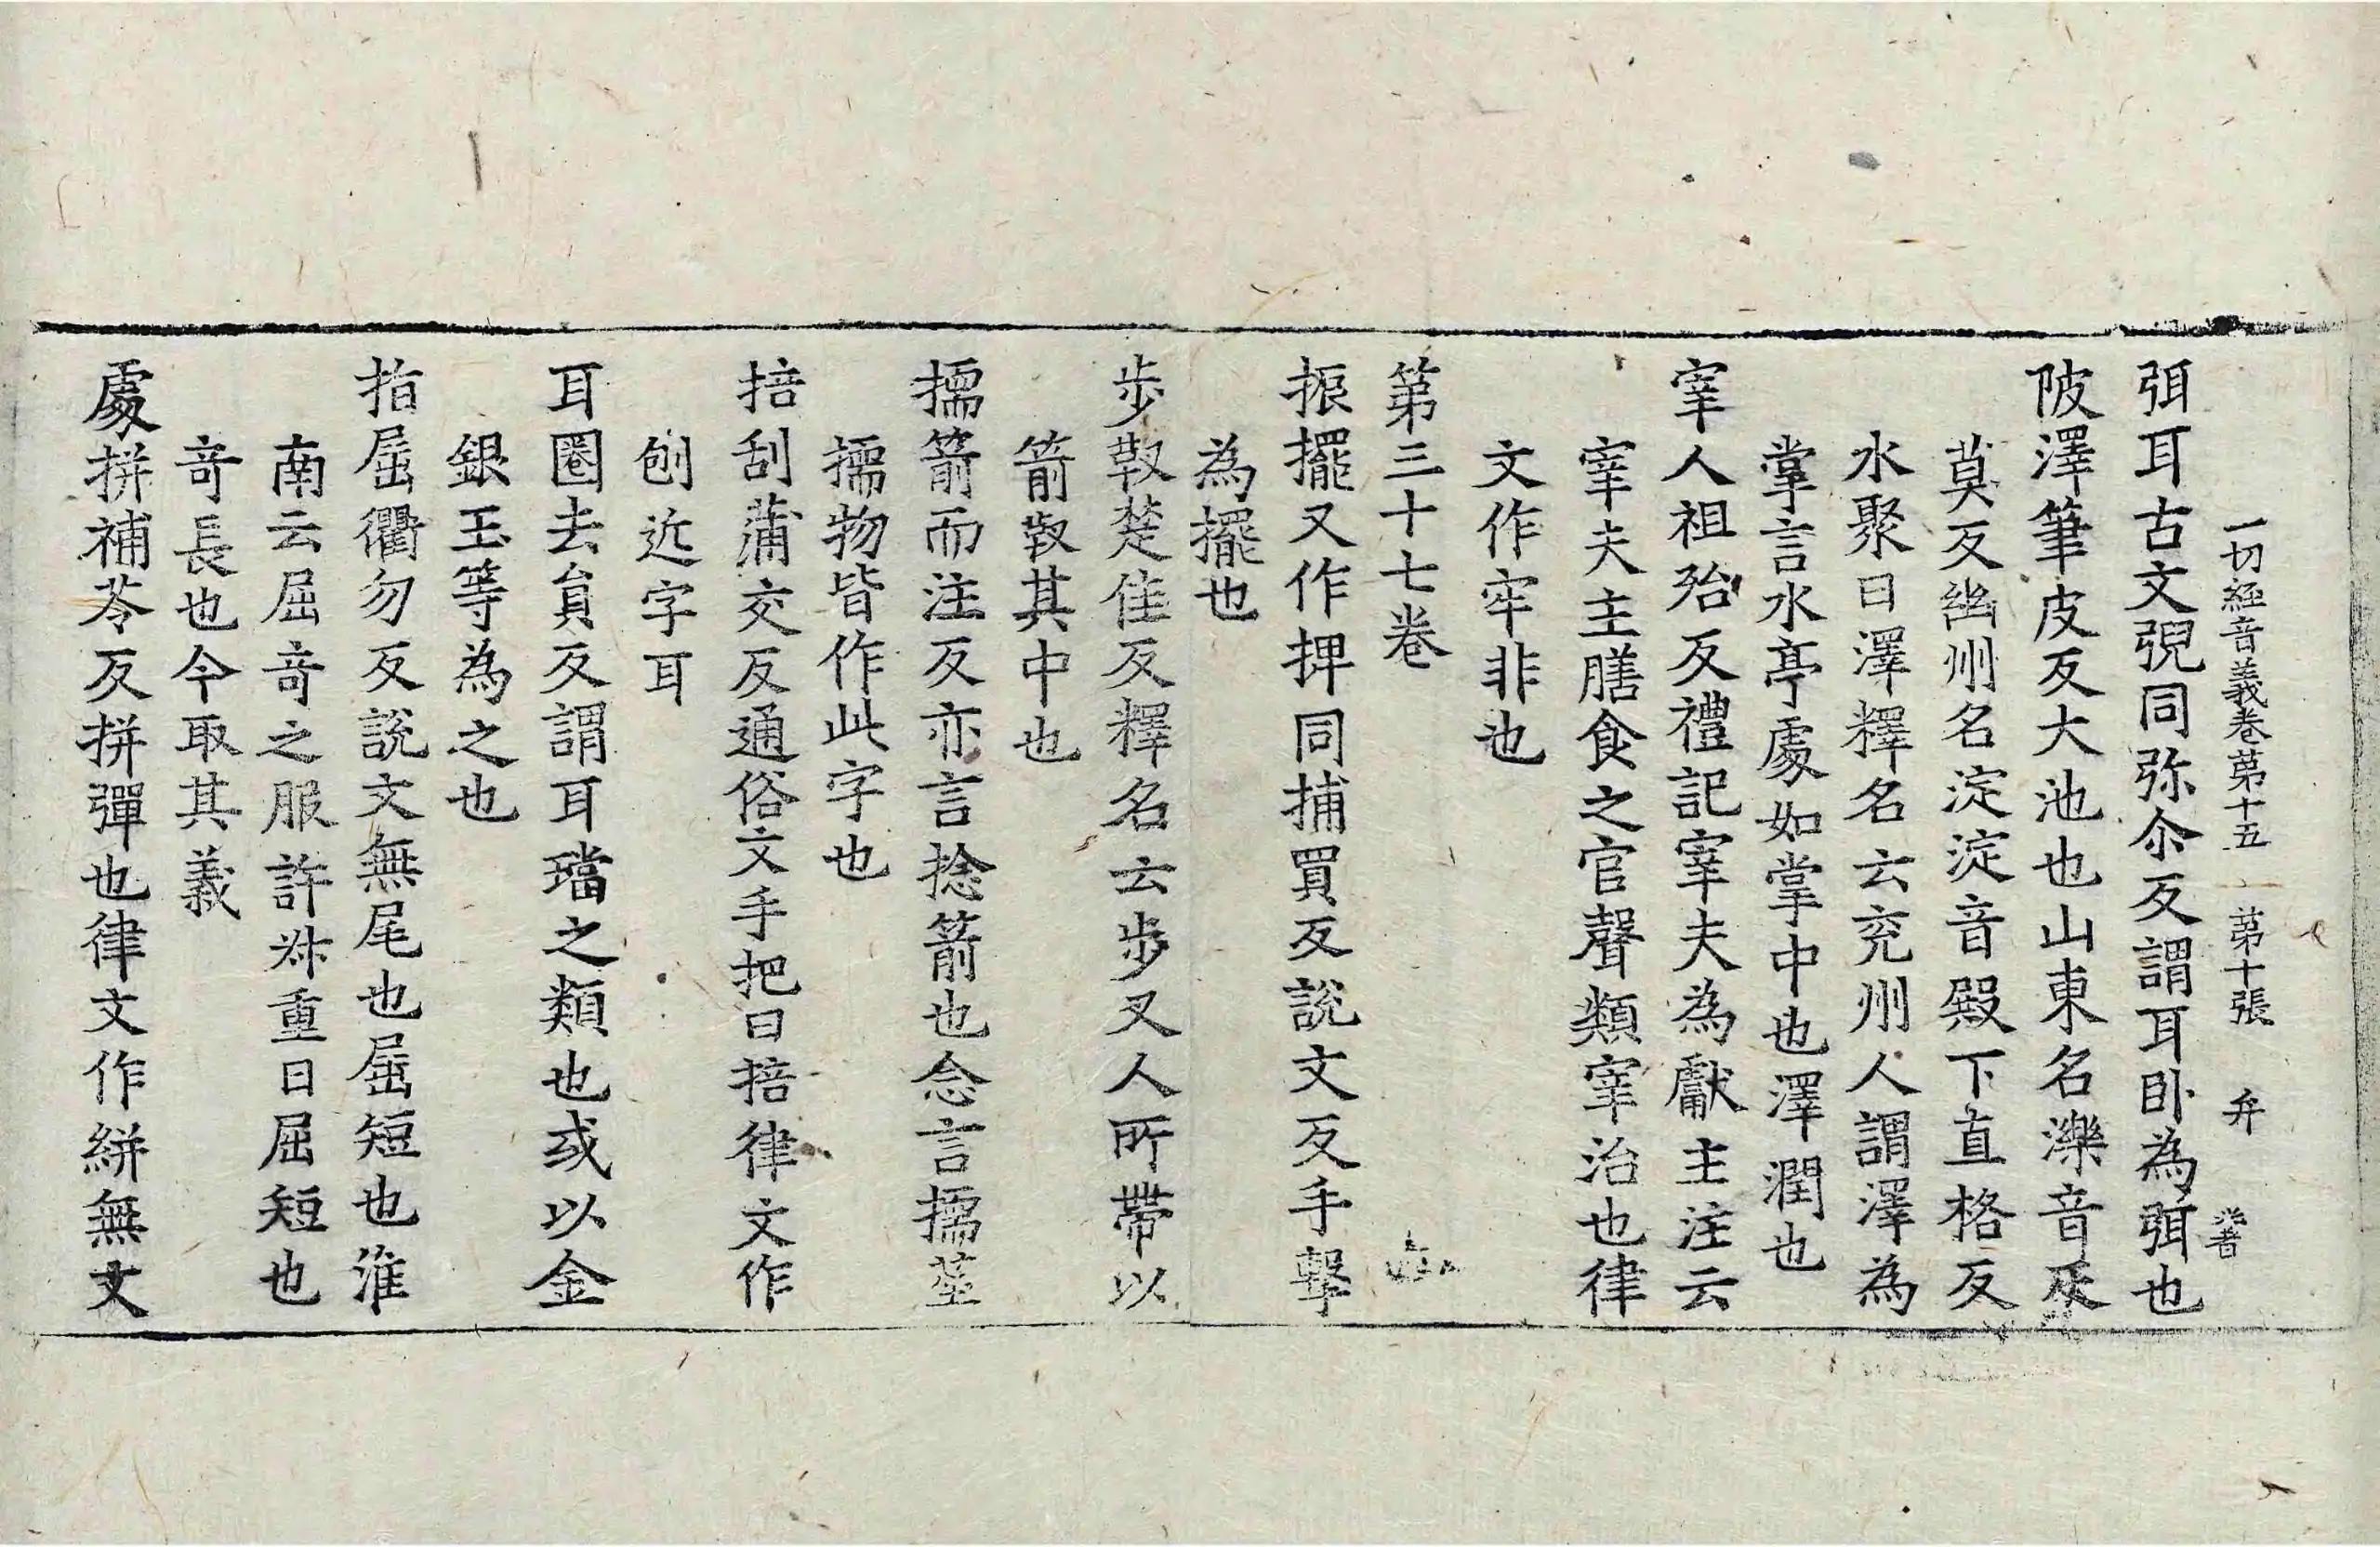 一切経音義卷第十五 第十張 弁
弭耳古文㒽同弥尒反謂耳卧為弭也
陂澤筆皮反大池也山東名濼音
莫反幽州名淀淀音殿下直格反
水聚曰澤釋名云兖州人謂澤為
掌言水亭處如掌中也澤潤也
宰人祖殆反禮記宰夫為獻主注云
宰夫主膳食之官聲類宰治也律
文作宰非也
第三十七卷
振擺又作捭同捕買反說文反手擊
為擺也
步靫楚佳反釋名云步叉人所帶以
箭靫其中也
擩箭而注反亦言捻箭也念言擩莖
擩物皆作此字也
掊刮蒲交反通俗文手把曰掊律文作
刨近字耳
耳圈去負反謂耳璫之類也或以金
銀玉等為之也
指屈衢勿反說文無尾也屈短也淮
南云屈竒之服許叔重曰屈短也
竒長也今取其義
處拼補苓反拼彈也律文作絣無文